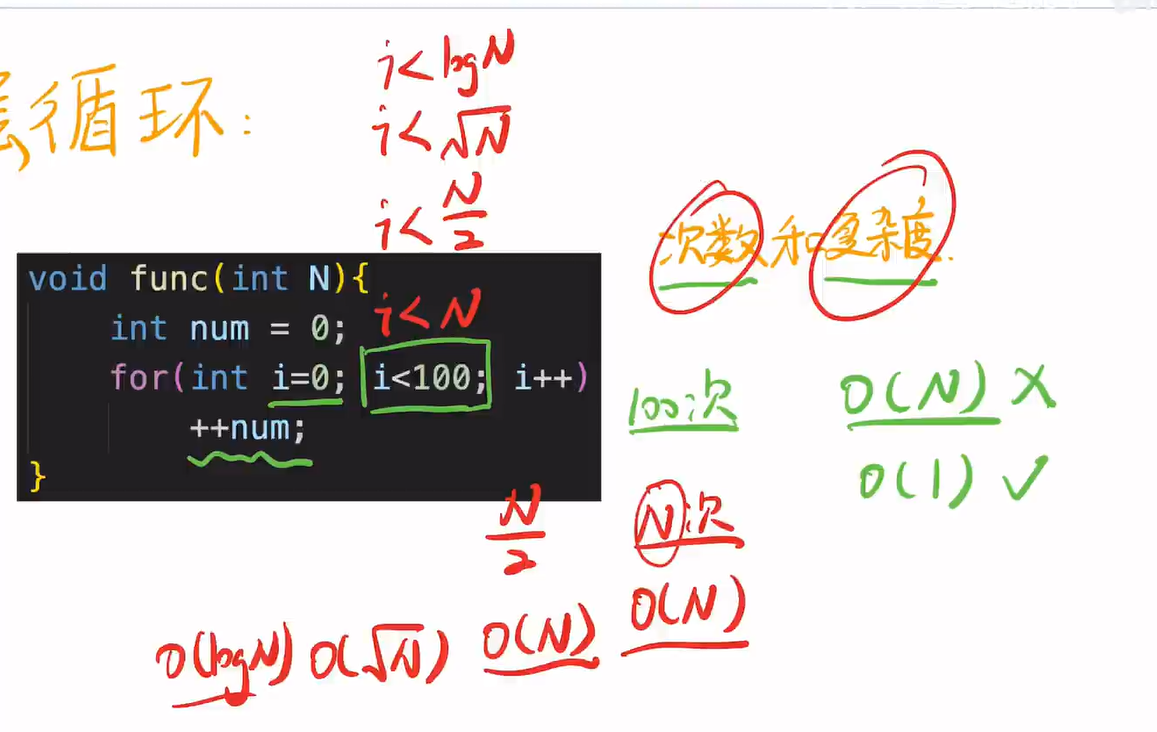 i<logN
循环:
i<√N
i<N/2
次数和复杂度.
void func(int N){
int num = 0;
i<N
for(int i=0; i<100; i++)
++num;
}
100次
O(N) ×
O(1) ✓
N/2
N次
O(logN) O(√N) O(N) O(N)